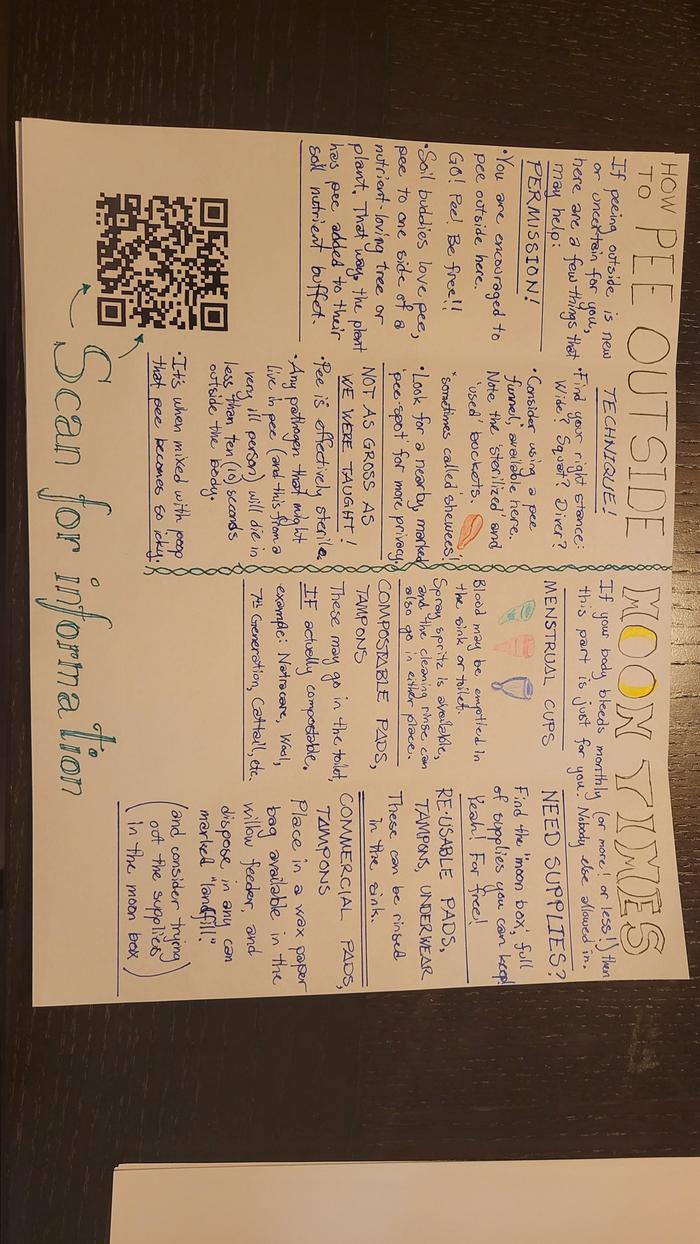 HOW TO PEE OUTSIDE
If peeing outside is new
or uncertain for you,
here are a few things that
may help:
PERMISSION!
• You are encouraged to
pee outside here.
GO! Pee! Be free!!
• Soil buddies love pee,
pee to one side of a
nutrient-loving tree or
plant. That way, the plant
has pee added to their
soil nutrient buffet.
TECHNIQUE!
• Find your right stance:
Wide? Squat? Diver?
• Consider using a pee
funnel, available here.
Note the 'sterilized' and
'used' buckets.
*sometimes called shewees!
• Look for a nearby, marked
'pee-spot' for more privacy.
NOT AS GROSS AS
WE WERE TAUGHT!
• Pee is effectively sterile.
• Any pathogen that might
live in pee (and this from a
very ill person) will die in
less than ten (10) seconds
outside the body.
• It's when mixed with poop
that pee becomes so icky.
MOON TIMES
If your body bleeds monthly (or more! or less!) then
this part is just for you. Nobody else allowed in.
MENSTRUAL CUPS
Blood may be emptied in
the sink or toilet.
Spray spritz is available,
and the cleaning rinse can
also go in either place.
COMPOSTABLE PADS,
TAMPONS
These may go in the toilet,
IF actually compostable.
example: Natracare, Wool,
7th Generation, Cattail, etc.
NEED SUPPLIES?
Find the "moon box", full
of supplies you can keep!
Yeah! For free!
RE-USABLE PADS,
TAMPONS, UNDERWEAR
These can be rinsed
in the sink.
COMMERCIAL PADS,
TAMPONS
Place in a wax paper
bag available in the
willow feeder, and
dispose in any can
marked "landfill."
(and consider trying
out the supplies
in the moon box)
Scan for information